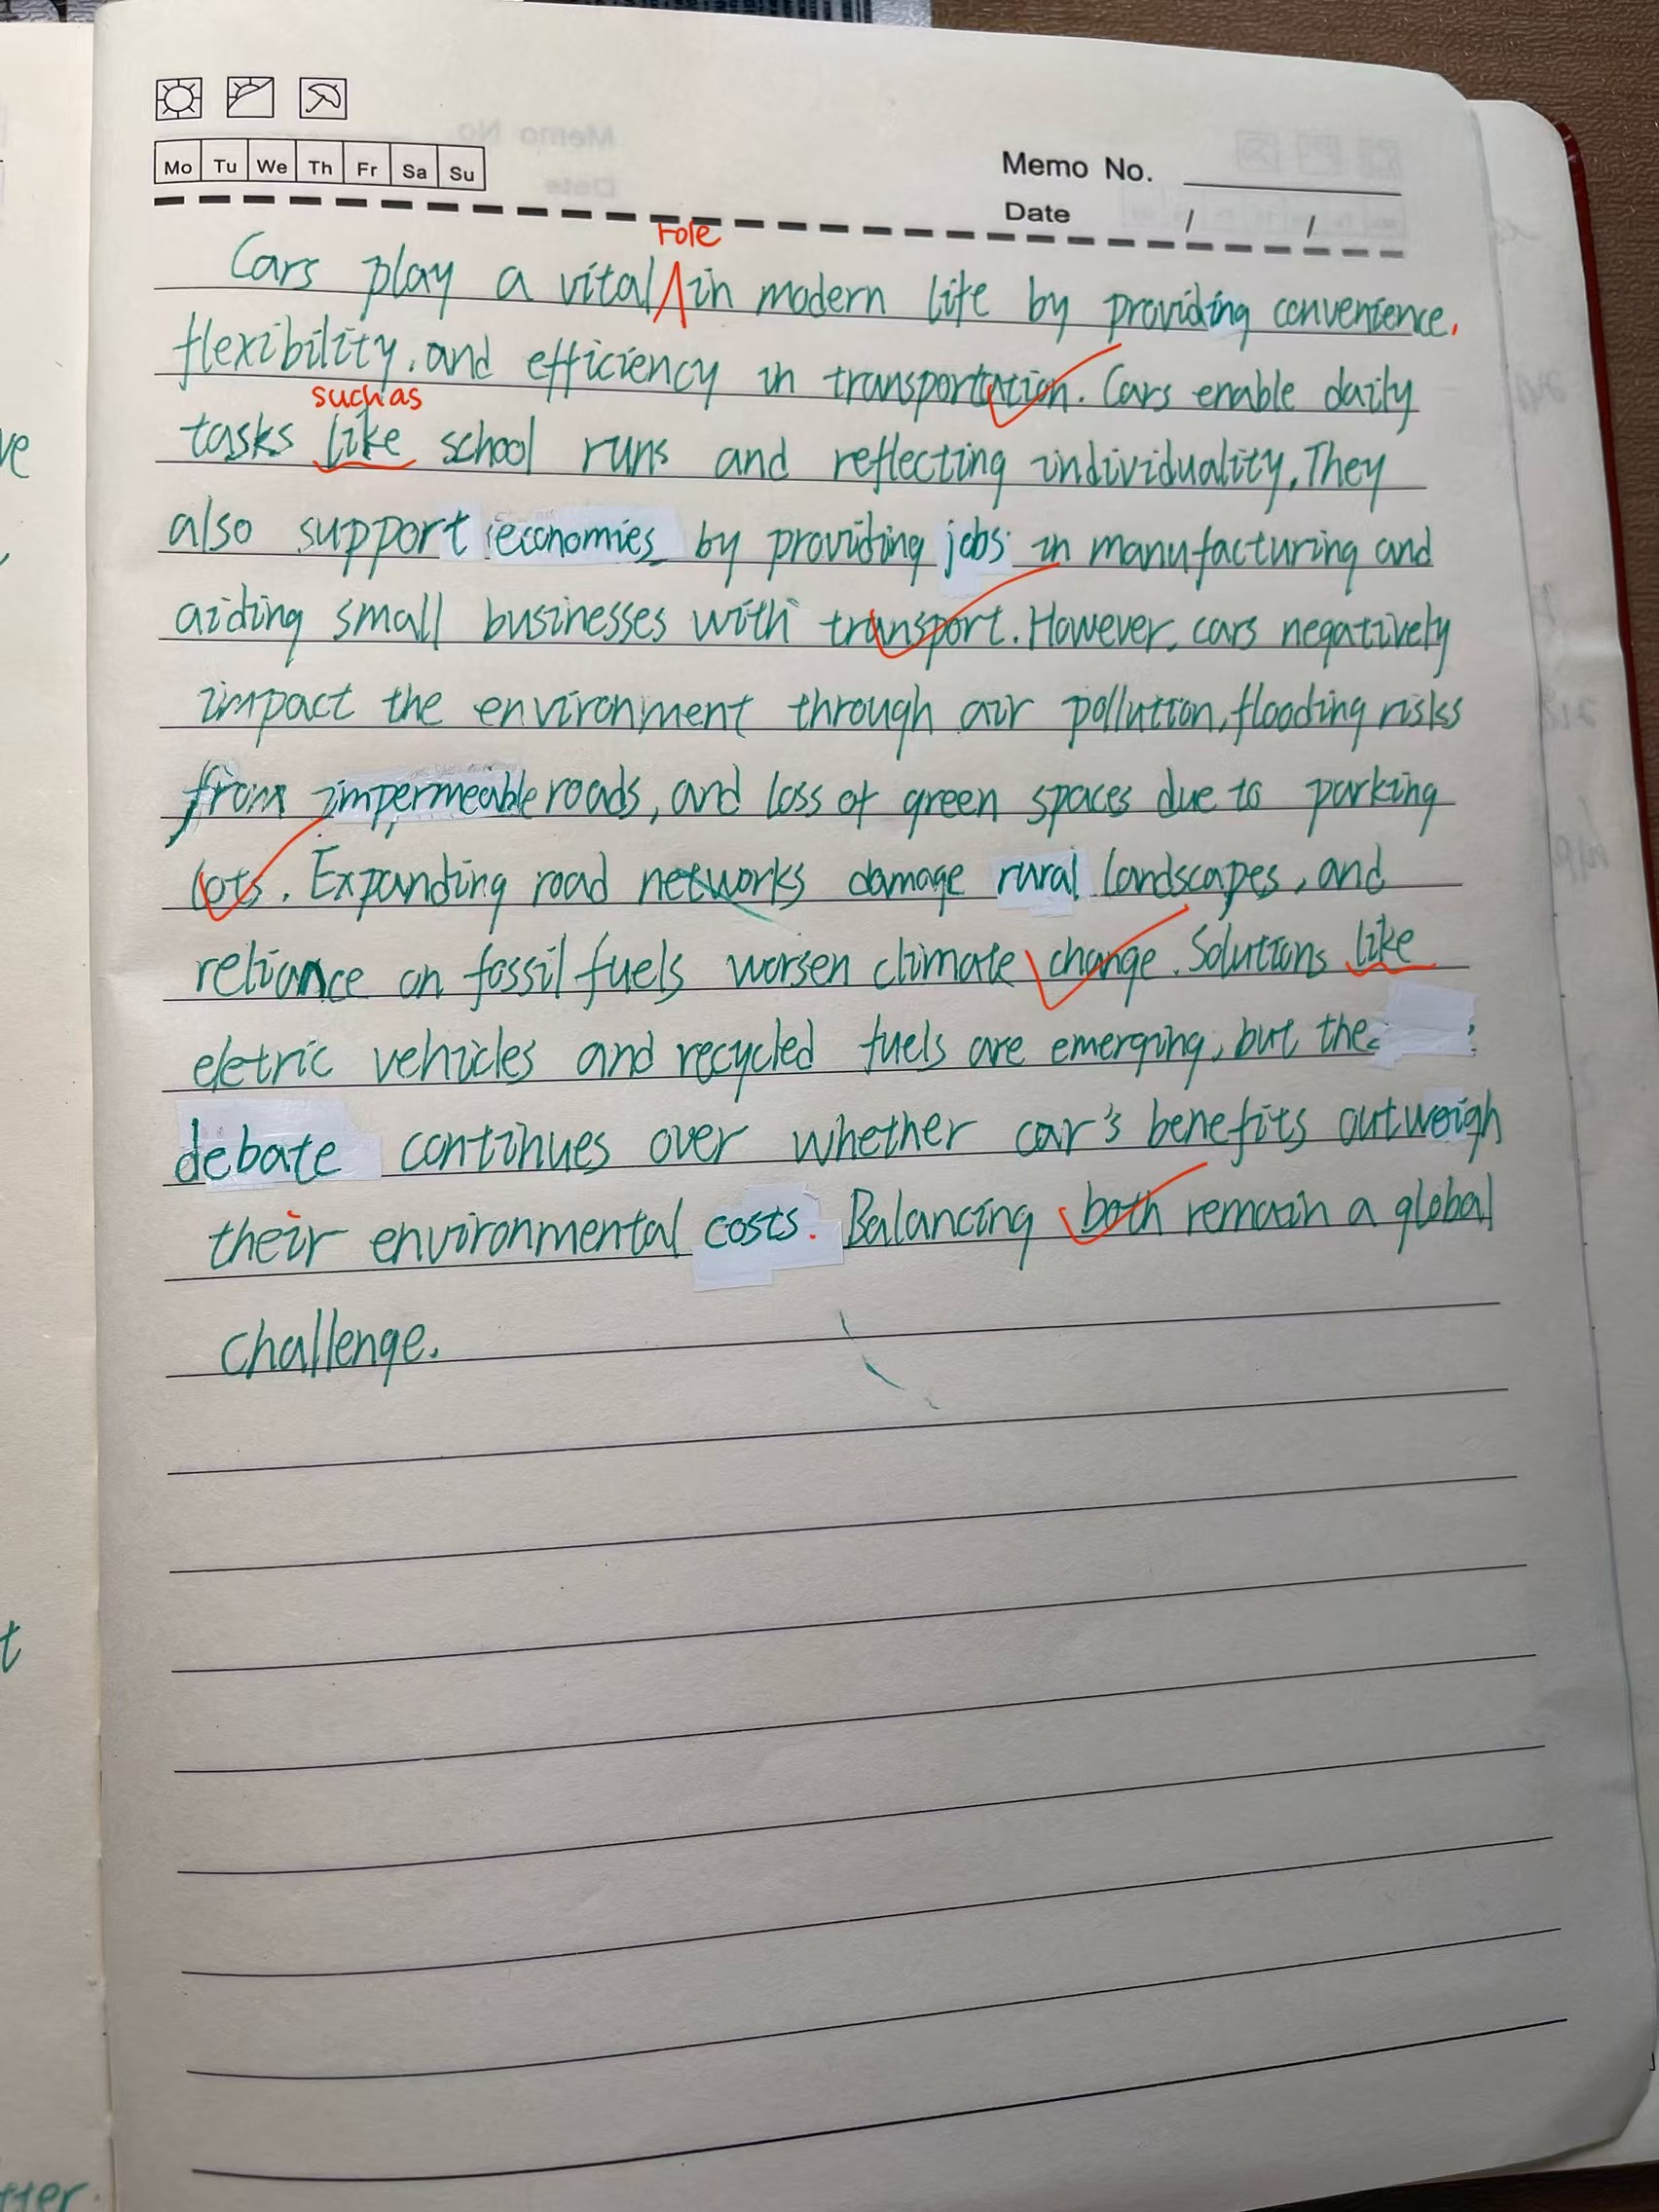 Mo Tu We Th Fr Sa Su
Memo No.
Date / /
role
Cars play a vital in modern life by providing convenience,
flexibility, and efficiency in transportation. Cars enable daily
such as
tasks like school runs and reflecting individuality. They
also support economies by providing jobs in manufacturing and
aiding small businesses with transport. However, cars negatively
impact the environment through air pollution, flooding risks
from impermeable roads, and loss of green spaces due to parking
lots. Expanding road networks damage rural landscapes, and
reliance on fossil fuels worsen climate change. Solutions like
eletric vehicles and recycled fuels are emerging, but the
debate continues over whether car's benefits outweigh
their environmental costs. Balancing both remain a global
challenge.